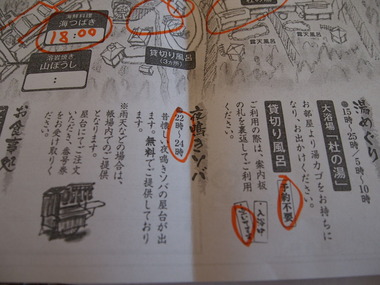 海鮮料理
海つばき
18:00
溶岩焼き
山ぼうし
:
貸切り風呂
(3カ所)
杜の湯
露天風呂
露天風呂
湯めぐり
大浴場「杜の湯」
●15時〜25時/5時〜10時
お部屋より湯カゴをお持ちに
なり、お出かけください。
貸切り風呂
予約不要
ご利用の際は、案内板
の札を裏返してご利用
ください。
入浴中
夜鳴きソバ
22時〜24時
昔懐しい夜鳴きソバの屋台が出
ます。無料でご提供しており
ます。
※雨天などの場合は、
帳場内でのご提供
となります。
屋台にてご注文
いただき、番号券
をお受け取りく
ださい。
お食事処